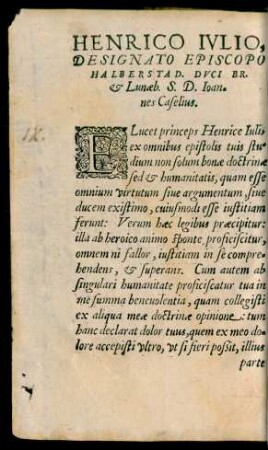 HENRICO IVLIO,
DESIGNATO EPISCOPO
HALBERSTAD. DVCI BR.
& Lunæb. S. D. Ioan-
nes Caselius.
IX.
ELucet princeps Henrice Iuli
ex omnibus epistolis tuis stu-
dium non solum bonæ doctrinæ
sed & humanitatis, quam esse
omnium virtutum siue argumentum, siue
ducem existimo, cuiusmodi esse iustitiam
ferunt: Verum hæc legibus præcipitur:
illa ab heroico animo sponte proficiscitur,
omnem ni fallor, iustitiam in se compre-
hendens, & superans. Cum autem ab
singulari humanitate proficiscatur tua in
me summa beneuolentia, quam collegisti
ex aliqua meæ doctrinæ opinione: tum
hanc declarat dolor tuus, quem ex meo do-
lore accepisti vltro, vt si fieri possit, illius
parte